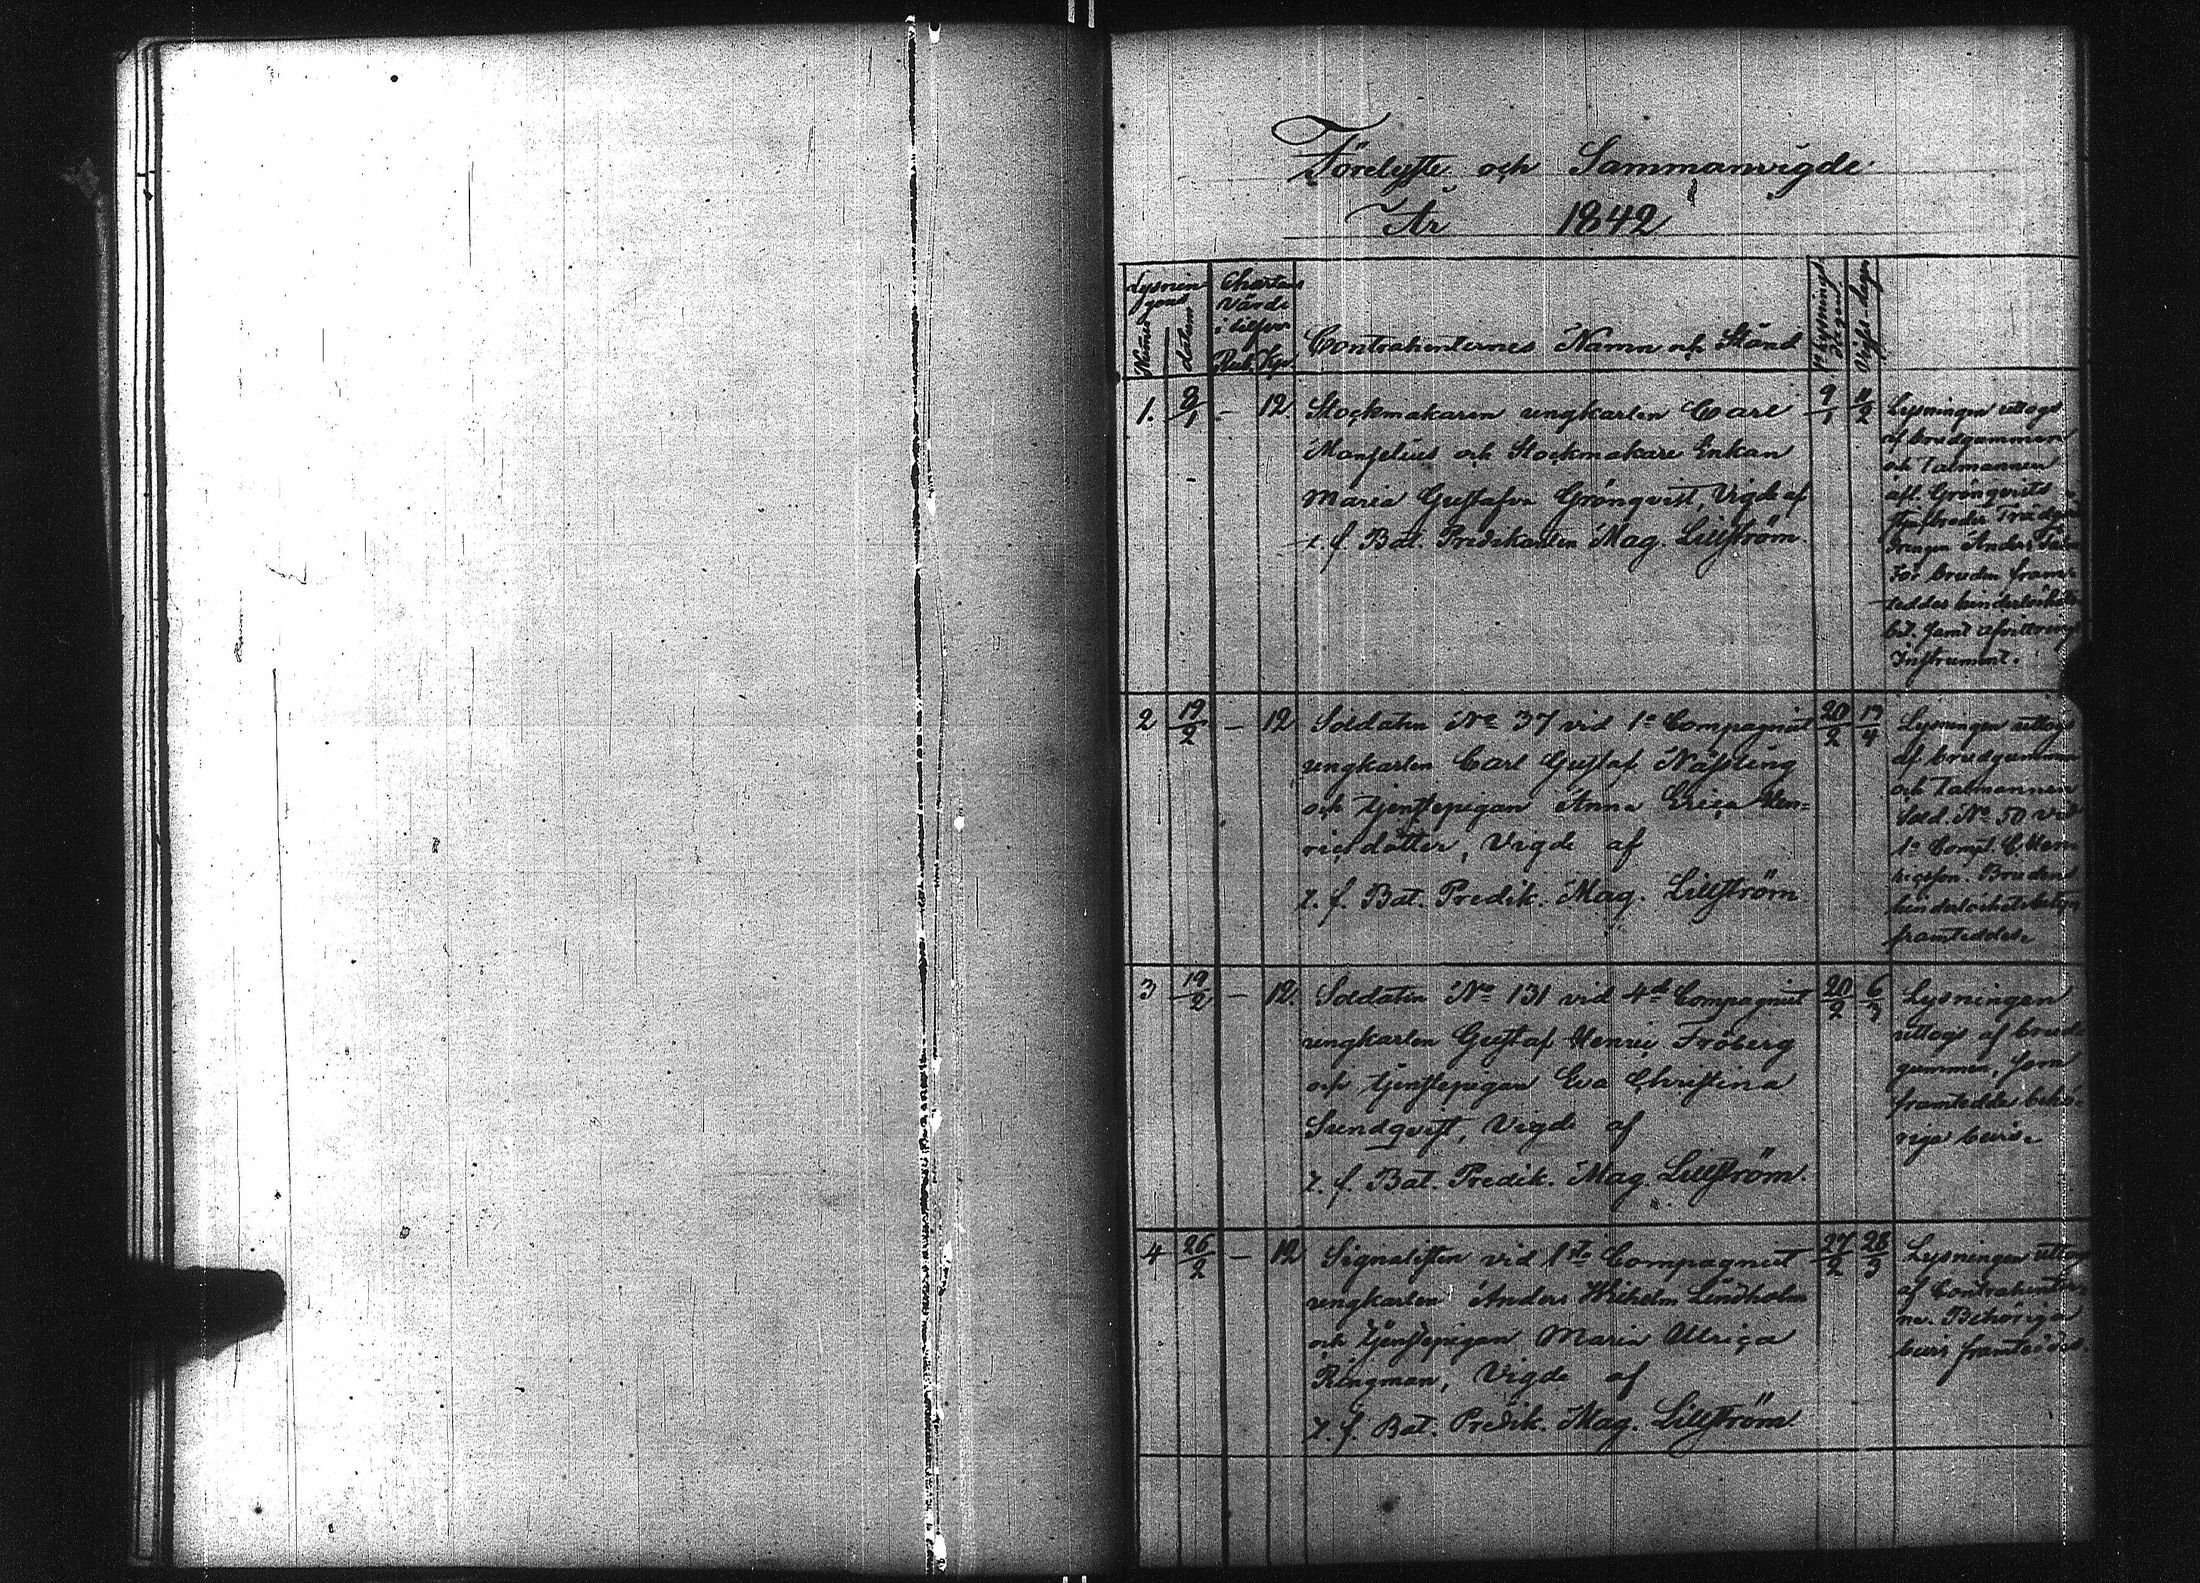 Förelyste och Sammanvigde
År 1842
Lysnin gens Num datum
Charta Värde i silfver Rub. Kop.
Contrahenternes Namn och Stånd
1a Lysnings dagen
Vigsel-dagen
1. 8/1 – 12 Stockmakaren ungkarlen Carl 9/1 11/2
Monselius och Stockmakare Enkan
Maria Gustafva Grönqvist, Vigde af
t. f. Bat. Predikanten Mag. Lillström.
Lysningen uttogs
af brudgummen
och Talmannen
afl. Grönqvists
För bruden fram-
teddes hinderlöshets
bet. samt afvittrings
Instrument.
2 19/2 – 12 Soldaten No 37 vid 1a Compagniet 20/2 17/4
ungkarlen Carl Gustaf Näsling
och tjenstepigan Anna Erica Hen-
ricsdotter, Vigde af
t. f. Bat. Predik. Mag. Lillström
Lysningen uttogs
af brudgummen
och Talmannen
Sold. No 50 vid
1a Comp. C. Hen-
ricsson. Bruden
hinderlöshetsbetyg
framteddes.
3 19/2 – 12. Soldaten No 131 vid 4de Compagniet 20/2 6/3
ungkarlen Gustaf Henric Fröberg
och tjenstepigan Eva Christina
Sundqvist, Vigde af
t. f. Bat. Predik. Mag. Lillström.
Lysningen
uttogs af brud-
gummen, som
framtedde behö-
riga bevis.
4 26/2 – 12 Signalisten vid 1sta Compagniet 27/2 28/3
ungkarlen Anders Wilhelm Lindholm
och tjenstepigan Maria Ulrica
Ringman, Vigde af
t. f. Bat. Predik. Mag. Lillström
Lysningen uttogs
af Contrahenter-
ne. Behöriga
bevis framteddes.